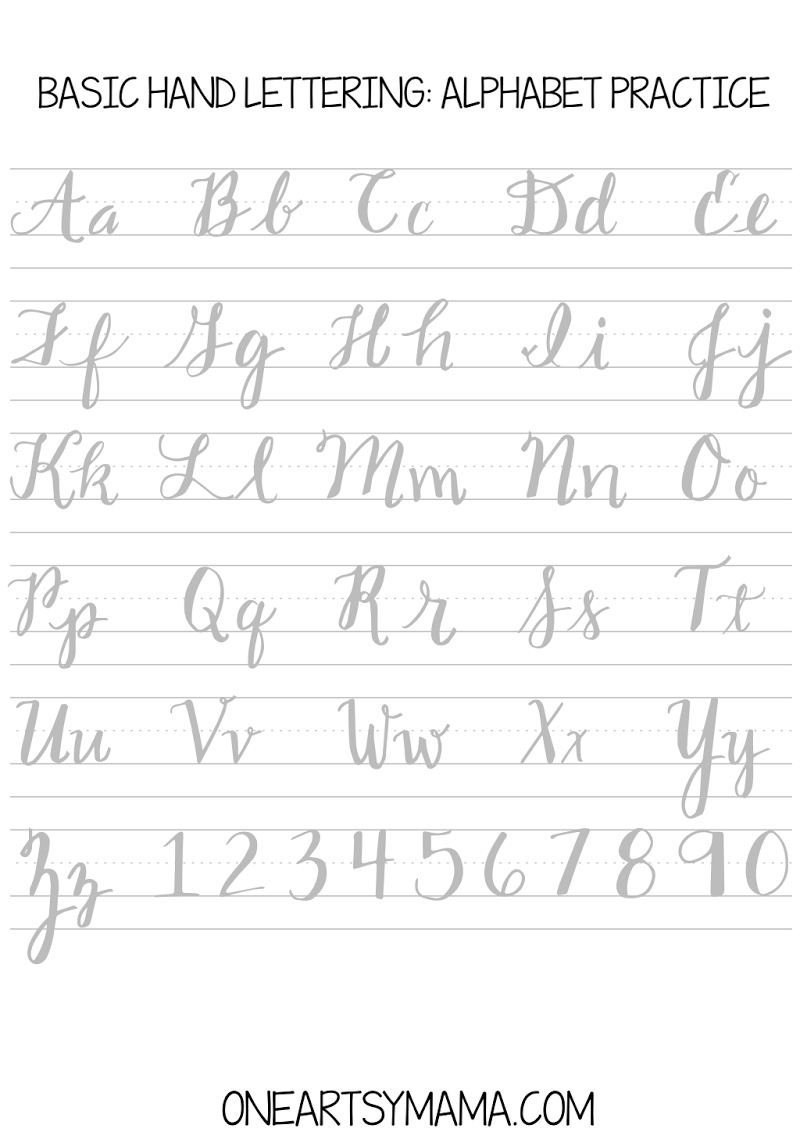 BASIC HAND LETTERING: ALPHABET PRACTICE
Aa Bb Cc Dd Ee
Ff Gg Hh Ii Jj
Kk Ll Mm Nn Oo
Pp Qq Rr Ss Tt
Uu Vv Ww Xx Yy
Zz 1 2 3 4 5 6 7 8 9 0
ONEARTSYMAMA.COM